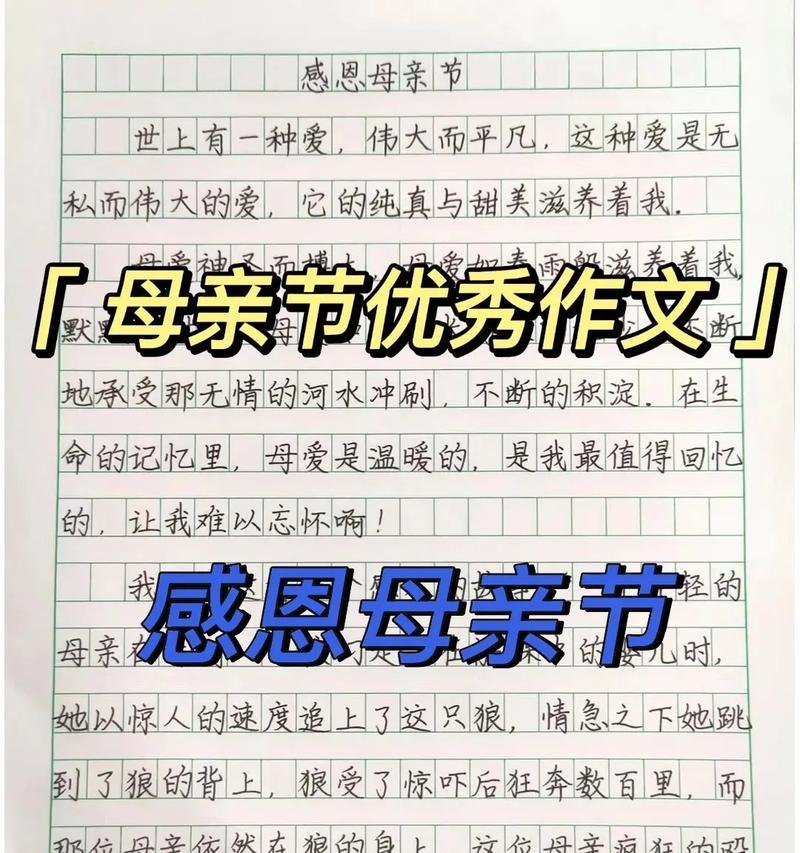 感恩母亲节
世上有一种爱，伟大而平凡，这种爱是无
私而伟大的爱，它的纯真与甜美滋养着我．
母爱神圣而博大，母爱如春雨般滋养着我，
「母亲节优秀作文」
默 断
地承受那无情的河水冲刷，不断的积淀．在生
命的记忆里，母爱是温暖的，是我最值得回忆
的，让我难以忘怀啊！
我 轻的
感恩母亲节
母亲 的婴儿时，
她以惊人的速度追上了这只狼，情急之下她跳
到了狼的背上，狼受了惊吓后狂奔数百里，而
那位母亲依然在狼的身上，这位母亲疯狂的